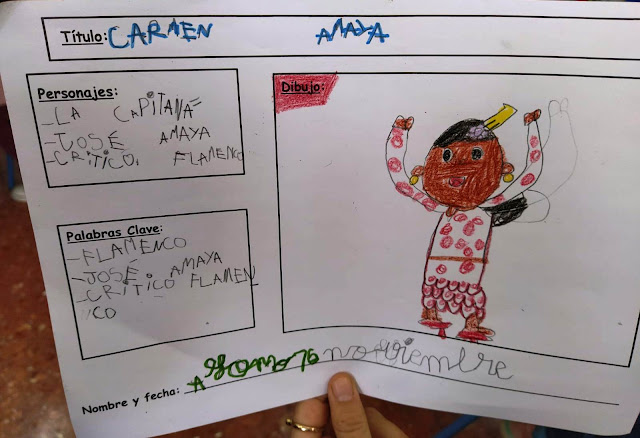 Título: CARMEN AMAYA
Personajes:
-LA CAPITANA
-JOSÉ AMAYA
-CRÍTICO. FLAMENCO
Dibujo:
Palabras Clave:
-FLAMENCO
-JOSÉ AMAYA
-CRÍTICO FLAMEN
CO
Nombre y fecha: 16 noviembre